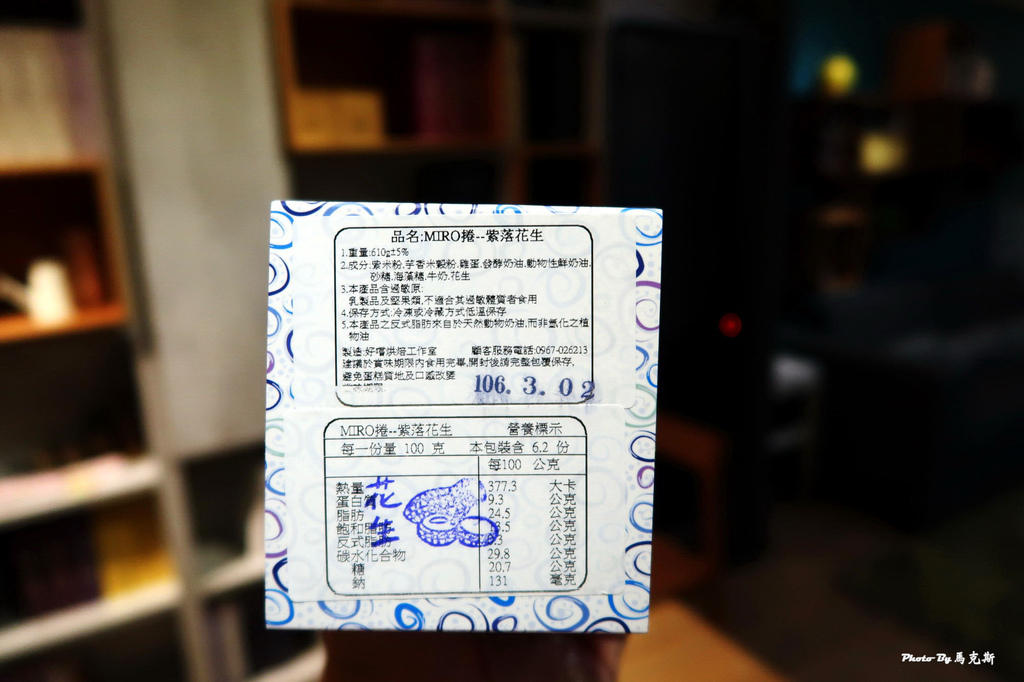 品名:MIRO捲--紫落花生
1.重量:610g±5%
2.成分:紫米粉,芋香米穀粉,雞蛋,發酵奶油,動物性鮮奶油,
砂糖,海藻糖,牛奶,花生
3.本產品含過敏原:
乳製品及堅果類,不適合其過敏體質者食用
4.保存方式:冷凍或冷藏方式低溫保存
5.本產品之反式脂肪來自於天然動物奶油,而非氫化之植
物油
製造:好嚐烘焙工作室 顧客服務電話:0967-026213
建議於賞味期限內食用完畢,開封後請完整包覆保存,
避免蛋糕質地及口感改變
106.3.02
MIRO捲--紫落花生 營養標示
每一份量 100 克 本包裝含 6.2 份
每100 公克
熱量 377.3 大卡
蛋白質 9.3 公克
脂肪 24.5 公克
飽和脂肪 公克
反式脂肪 公克
碳水化合物 29.8 公克
糖 20.7 公克
鈉 131 毫克
花生
Photo By 馬克斯